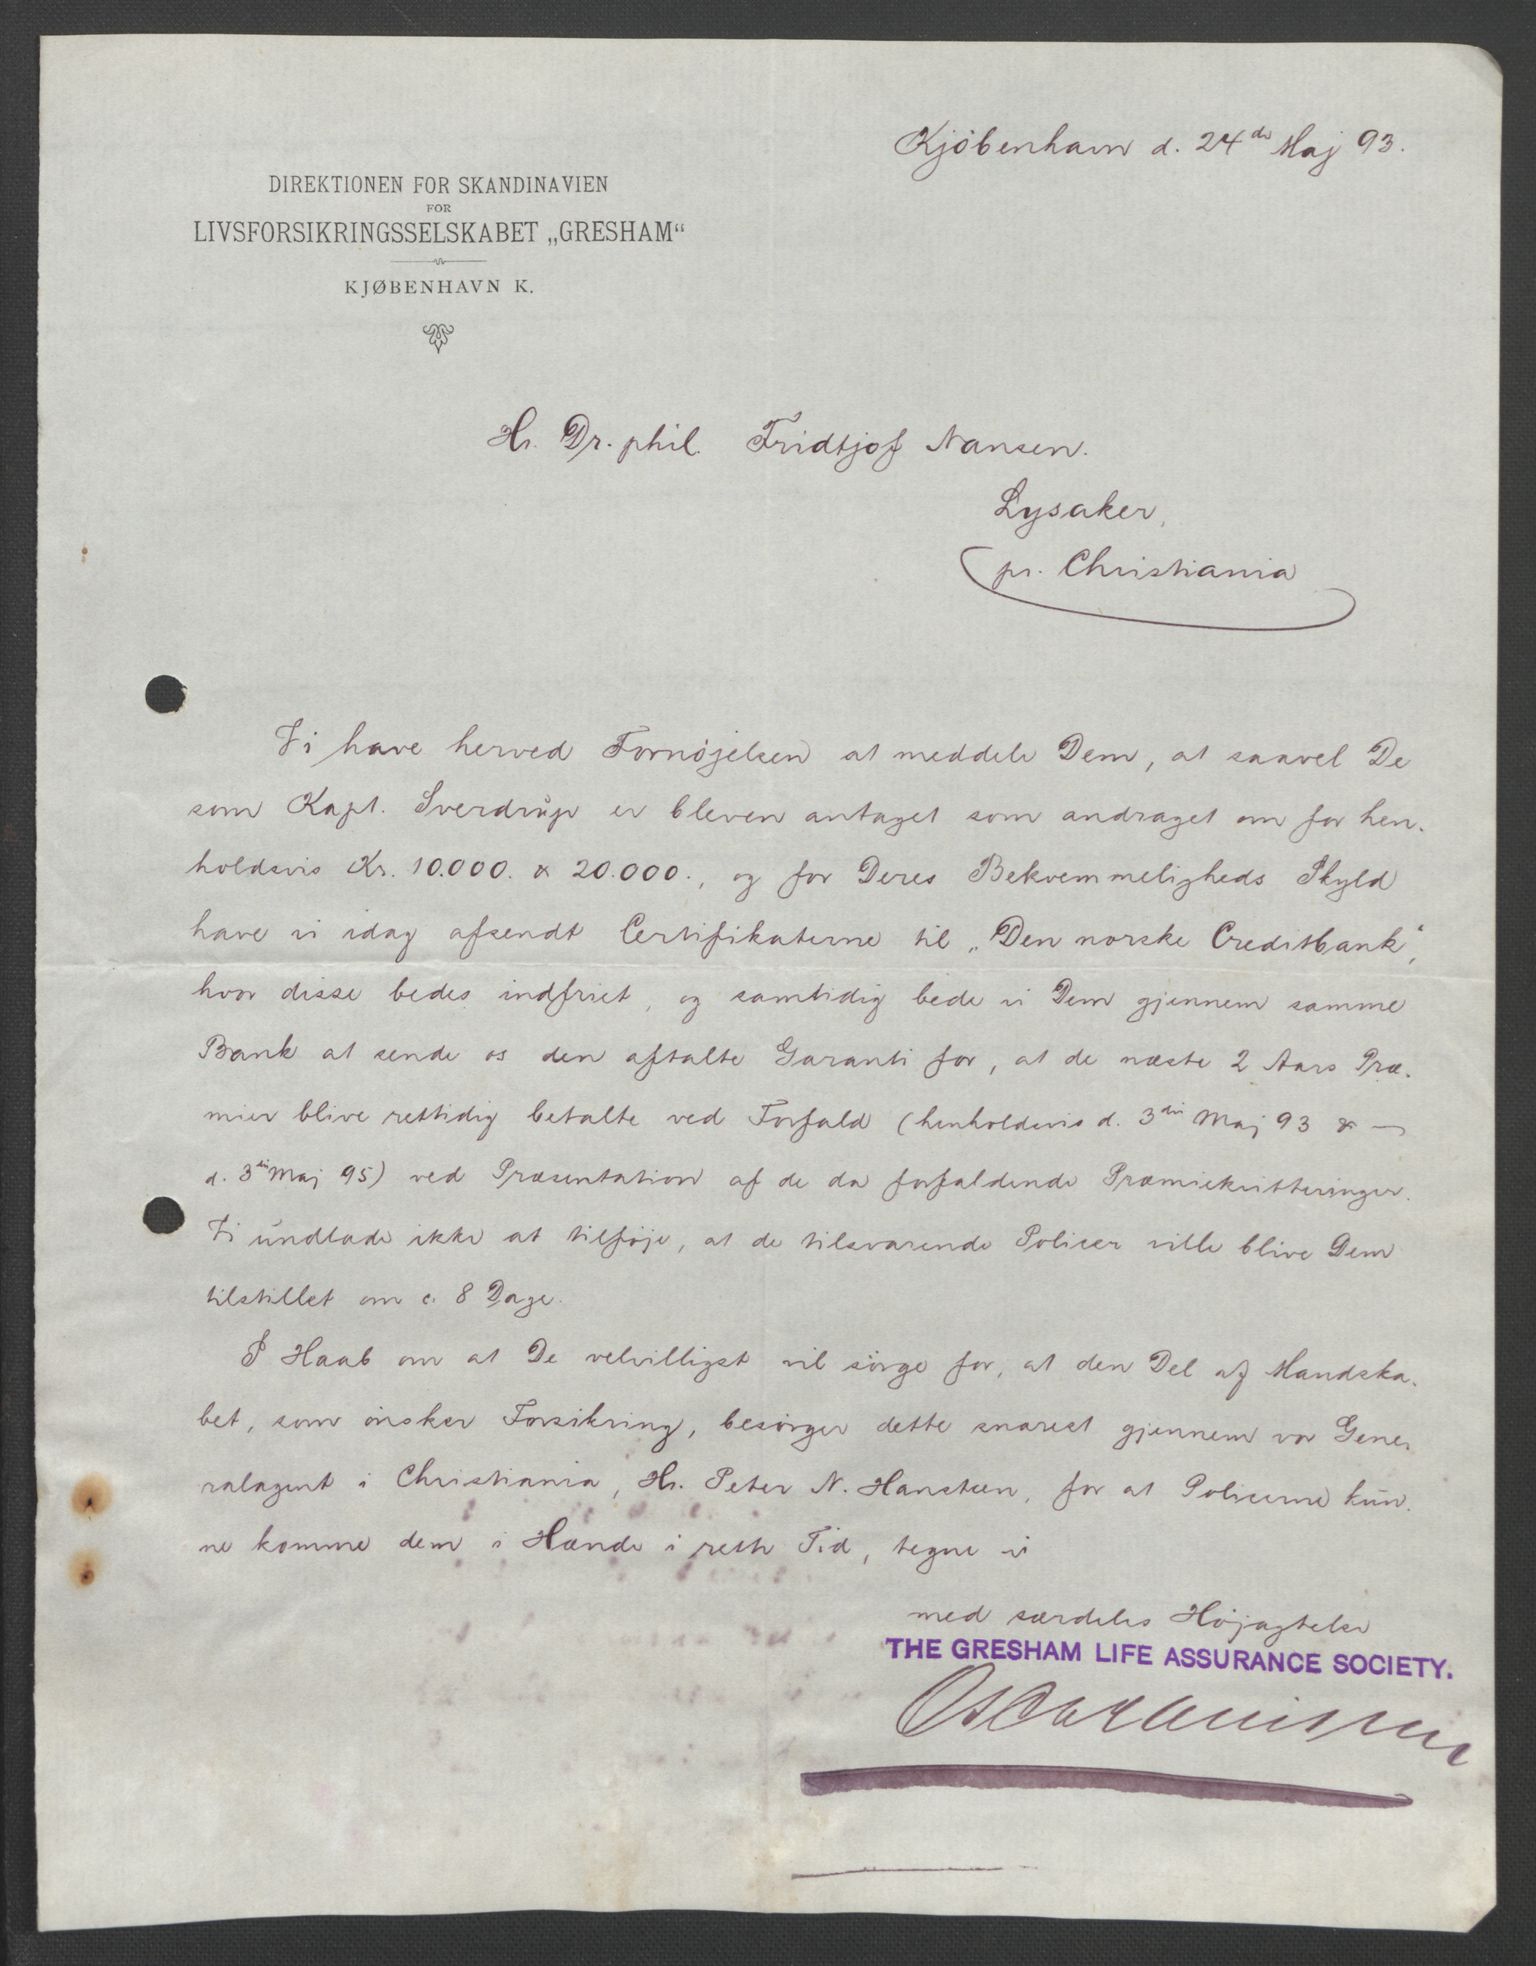 Kjöbenhavn d. 24de Maj 93.
DIREKTIONEN FOR SKANDINAVIEN
FOR
LIVSFORSIKRINGSSELSKABET „GRESHAM“
KJØBENHAVN K.
Hr. Dr. phil. Fridtjof Nansen.
Lysaker,
pr. Christiania
Vi have herved Fornöjelsen at meddele Dem, at saavel De
som Kapt. Sverdrup er bleven antaget som andraget om for hen-
holdsvis Kr. 10.000. & 20.000., og for Deres Bekvemmeligheds Skyld
have vi idag afsendt Certifikaterne til „Den norske Creditbank“,
hvor disse bedes indfriet, og samtidig bede vi Dem gjennem samme
Bank at sende os den aftalte Garanti for, at de næste 2 Aars Præ-
mier blive rettidig betalte ved Forfald (henholdsvis d. 3die Maj 93 & —
d. 3die Maj 95) ved Præsentation af de da forfaldende Præmiekvitteringer.
Vi undlade ikke at tilföje, at de tilsvarende Policer ville blive Dem
tilstillet om c. 8 Dage.
I Haab om at De velvilligst vil sörge for, at den Del af Mandska-
bet, som önsker Forsikring, besörger dette snarest gjennem vor Gene-
ralagent i Christiania, Hr. Peter N. Hansteen, for at Policerne kun-
ne komme dem i Hænde i rette Tid, tegne vi
med særdeles Höjagtelse
THE GRESHAM LIFE ASSURANCE SOCIETY.